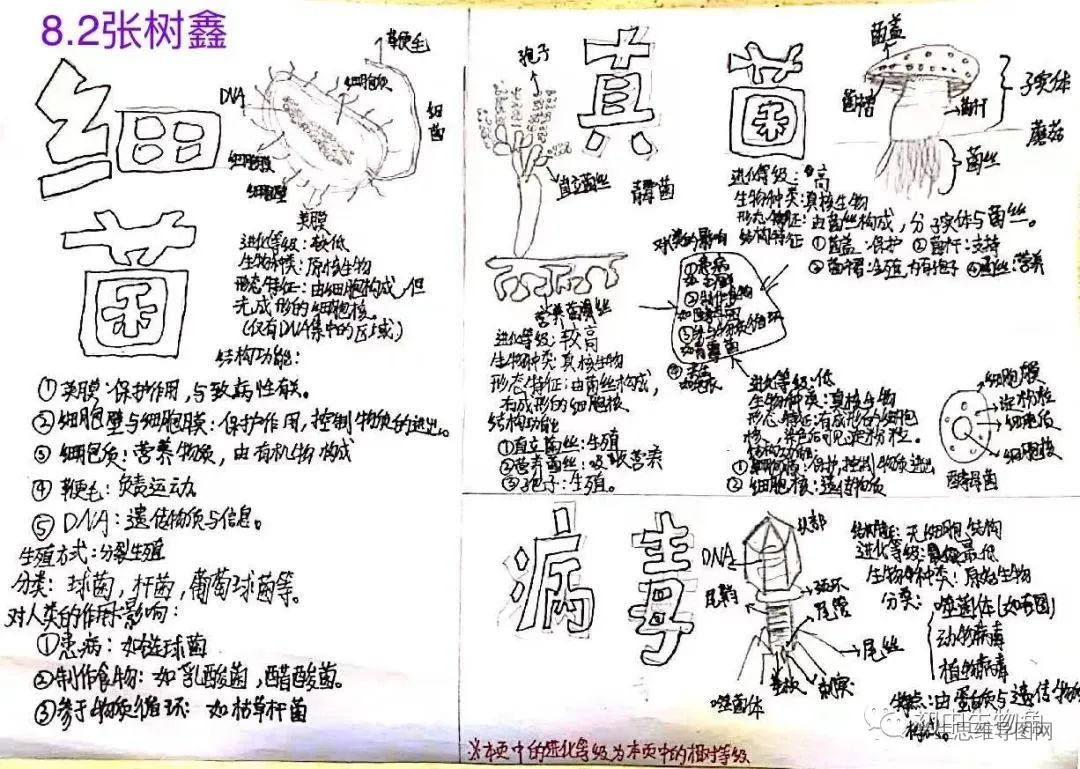 8.2张树鑫
细
菌
DNA
细胞质
鞭毛
细菌
细胞膜
细胞壁
荚膜
进化等级：较低
生物种类：原核生物
形态特征：由细胞构成，但
无成形的细胞核。
(仅有DNA集中的区域)
结构功能：
①荚膜：保护作用，与致病性有关。
②细胞壁与细胞膜：保护作用，控制物质的进出。
③细胞质：营养物质，由有机物构成
④鞭毛：负责运动
⑤DNA：遗传物质与信息。
生殖方式：分裂生殖
分类：球菌，杆菌，葡萄球菌等。
对人类的作用影响：
①患病：如链球菌
②制作食物：如乳酸菌，醋酸菌。
③参于物质循环：如枯草杆菌
真菌
孢子
直立菌丝
青霉菌
营养菌丝
进化等级：较高
生物种类：真核生物
形态特征：由菌丝构成，
有成形的细胞核
结构功能
①直立菌丝：生殖
②营养菌丝：吸收营养
③孢子：生殖。
菌盖
菌褶
菌柄
子实体
蘑菇
菌丝
进化等级：高
生物种类：真核生物
形态特征：由菌丝构成，分子实体与菌丝。
结构特征 ①菌盖：保护 ②菌柄：支持
③菌褶：生殖，内有孢子 ④菌丝：营养
对人类的影响
①患病
②制作食物
③参与物质循环
进化等级：低
生物种类：真核生物
形态特征：有成形的细胞
核，染色后可见淀粉粒。
结构功能：
①细胞膜：保护，控制物质进出
②细胞核：遗传物质
细胞膜
淀粉粒
细胞质
细胞核
酵母菌
病毒
头部
DNA
颈环
尾鞘
尾管
尾丝
基板
刺突
噬菌体
结构特征：无细胞结构
进化等级：最低
生物种类：原始生物
分类：噬菌体(如左图)
动物病毒
植物病毒
特点：由蛋白质与遗传物质
构成。
初中生物角
初中生思维导图网
※本页中的进化等级为本页中的相对等级